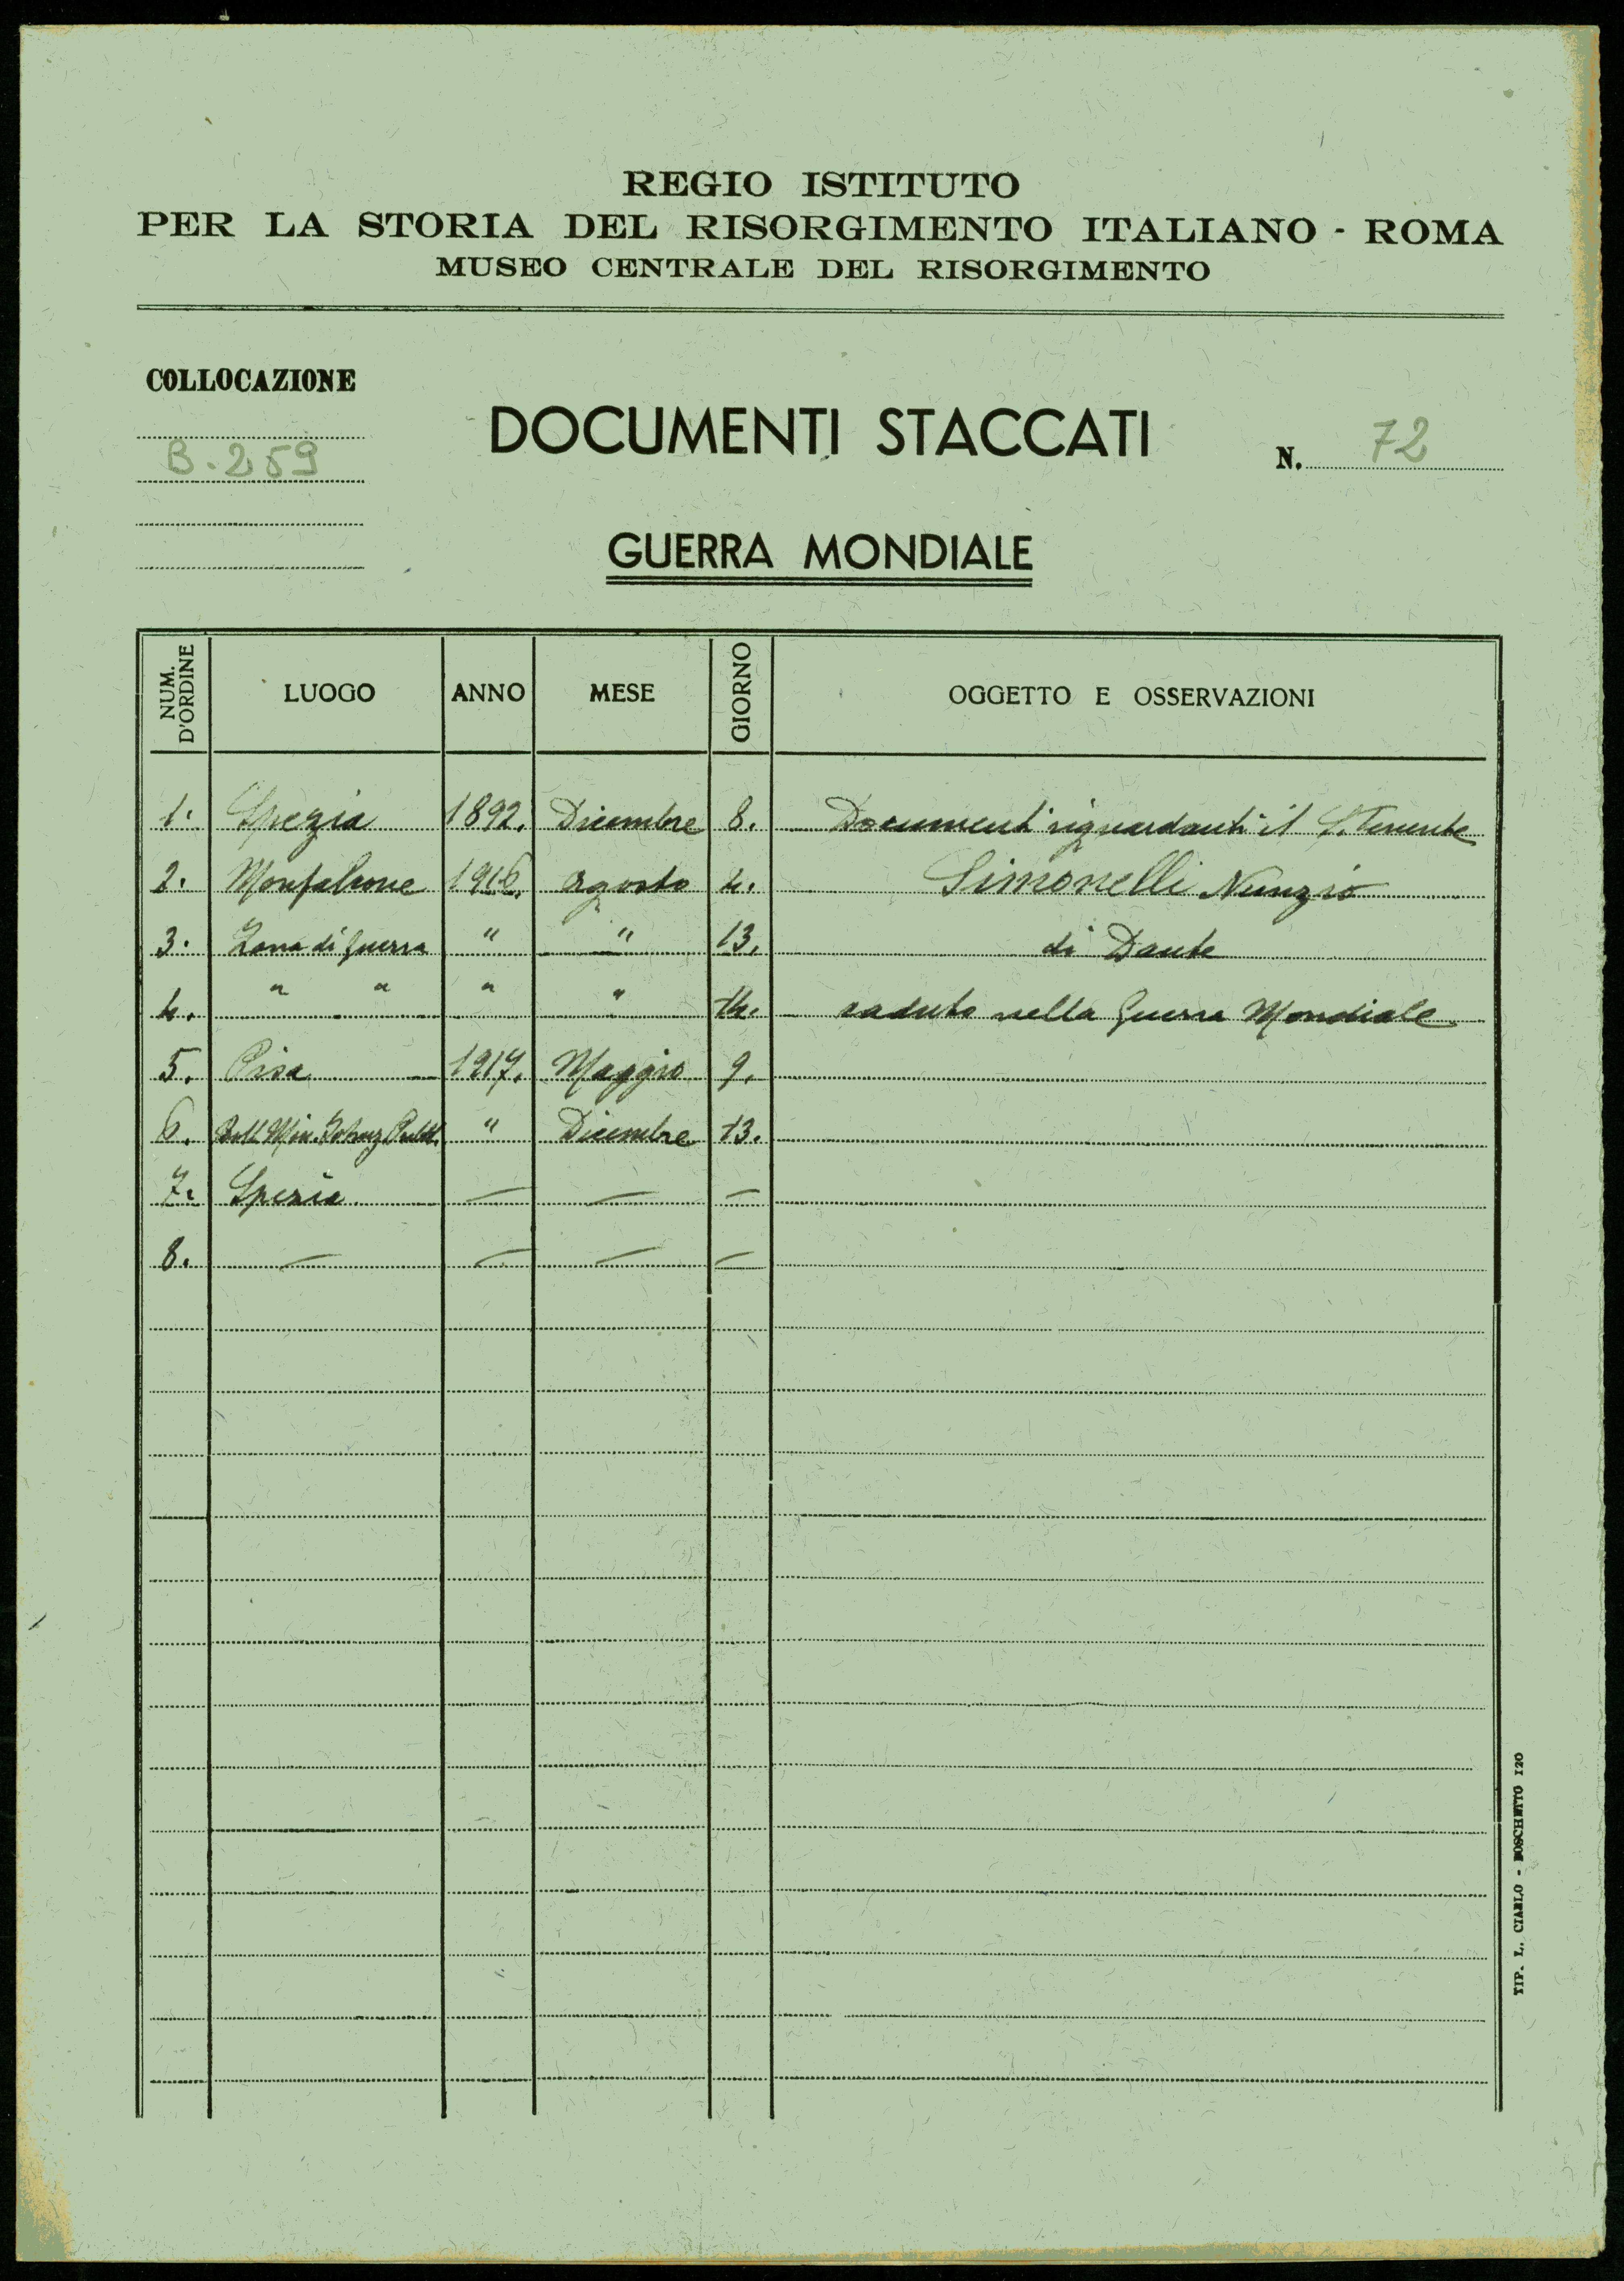 REGIO ISTITUTO
PER LA STORIA DEL RISORGIMENTO ITALIANO - ROMA
MUSEO CENTRALE DEL RISORGIMENTO
COLLOCAZIONE
B. 259
DOCUMENTI STACCATI
N. 72
GUERRA MONDIALE
NUM. D'ORDINE LUOGO ANNO MESE GIORNO OGGETTO E OSSERVAZIONI
1. Spezia 1892. Dicembre 8. Documenti riguardanti il S. Tenente
2. Monfalcone 1916. Agosto 4. Simonelli Nunzio
3. Zona di guerra " " 13. di Dante
4. " " " " 14. caduto nella Guerra Mondiale
5. Pisa 1917. Maggio 9.
6. Boll. Min. " Dicembre 13.
7. Spezia — — —
8. — — — —
TIP. L. CIARLO - BOSCHETTO 120